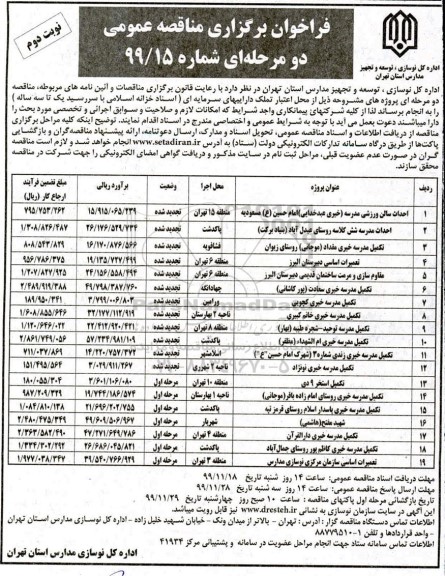 فراخوان برگزاری مناقصه عمومی
دو مرحله‌ای شماره ۹۹/۱۵
نوبت دوم
اداره کل نوسازی ، توسعه و تجهیز
مدارس استان تهران
اداره کل نوسازی ، توسعه و تجهیز مدارس استان تهران در نظر دارد با رعایت قانون برگزاری مناقصات و آئین نامه های مربوطه، مناقصه
دو مرحله ای پروژه های مشروحه ذیل از محل اعتبار تملک داراییهای سرمایه ای ( اسناد خزانه اسلامی با سررسید یک تا سه ساله )
را به انجام برساند لذا از کلیه شرکتهای پیمانکاری واجد شرایط که امکانات لازم و صلاحیت و سوابق اجرائی و تخصصی مورد بحث را
دارا میباشند دعوت بعمل می آید با توجه به شرایط عمومی و اختصاصی مندرج در اسناد اقدام نمایند. توضیح اینکه کلیه مراحل برگزاری
مناقصه از دریافت اطلاعات و اسناد مناقصه عمومی، تحویل اسناد و مدارک، ارسال دعوتنامه، ارائه پیشنهاد مناقصه گران و بازگشایی
پاکتها از طریق درگاه سامانه تدارکات الکترونیکی دولت (ستاد) به آدرس www.setadiran.ir انجام خواهد شد و لازم است مناقصه
گران در صورت عدم عضویت قبلی، مراحل ثبت نام در سایت مذکور و دریافت گواهی امضای الکترونیکی را جهت شرکت در مناقصه
محقق سازند.
ردیف عنوان پروژه محل اجرا وضعیت برآورد ریالی مبلغ تضمین فرآیند ارجاع کار (ریال)
۱ احداث سالن ورزشی مدرسه (خیری عبدخدایی) امام حسین (ع) مسعودیه منطقه ۱۵ تهران تجدید شده ۱۵/۹۱۵/۰۶۵/۲۳۹ ۷۹۵/۷۵۳/۲۶۲
۲ احداث مدرسه شش کلاسه روستای عبدل آباد (بنیاد برکت) پاکدشت تجدید شده ۲۶/۱۷۶/۵۲۹/۷۳۴ ۱/۳۰۸/۸۲۶/۴۸۷
۳ تکمیل مدرسه خیری مقداد (موجانی) روستای زیوان فشافویه تجدید شده ۱۶/۱۷۰/۸۷۶/۵۶۶ ۸۰۸/۵۴۳/۸۲۹
۴ تعمیرات اساسی دبیرستان البرز منطقه ۶ تهران تجدید شده ۱۹/۱۳۵/۷۲۷/۴۹۹ ۹۵۶/۷۸۶/۳۷۵
۵ مقاوم سازی و مرمت ساختمان قدیمی دبیرستان البرز منطقه ۶ تهران تجدید شده ۲۴/۱۵۶/۵۵۸/۴۹۴ ۱/۲۰۷/۸۲۷/۹۲۵
۶ تکمیل مدرسه خیری سعادت (پور کاشانی) چهاردانگه تجدید شده ۴۹/۷۹۸/۳۸۷/۷۶۰ ۲/۴۸۹/۹۱۹/۳۸۸
۷ تکمیل مدرسه خیری کچویی ورامین تجدید شده ۳/۷۹۹/۰۰۶/۸۰۳ ۱۸۹/۹۵۰/۳۴۱
۸ تکمیل مدرسه خیری خانم کبیری ناحیه ۲ بهارستان تجدید شده ۳۲/۱۷۷/۱۱۲/۹۱۹ ۱/۶۰۸/۸۵۵/۶۴۶
۹ تکمیل مدرسه توحید-شجره طیبه (بهار) منطقه ۸ تهران تجدید شده ۲۲/۴۱۲/۹۲۰/۴۳۱ ۱/۱۲۰/۶۴۶/۰۲۲
۱۰ تکمیل مدرسه خیری ام الشهداء (مظفر) پاکدشت تجدید شده ۵۷/۲۳۴/۹۸۱/۱۰۹ ۲/۸۶۱/۷۴۹/۰۵۶
۱۱ تکمیل مدرسه خیری زندی شماره۳ (شهرک امام حسین"ع") اسلامشهر تجدید شده ۱۴/۲۲۰/۷۵۷/۳۷۲ ۷۱۱/۰۳۷/۸۶۹
۱۲ تکمیل مدرسه خیری نونژاد ناحیه ۲ شهرری تجدید شده ۳/۰۲۹/۹۱۱/۲۶۷ ۱۵۱/۴۹۵/۵۶۴
۱۳ تکمیل استخر ۹ دی منطقه ۱۰ تهران مرحله اول ۳/۶۰۱/۱۰۶/۰۸۰ ۱۸۰/۰۵۵/۳۰۴
۱۴ تکمیل مدرسه خیری روستای امام زاده باقر (موجانی) ناحیه ۱ بهارستان مرحله اول ۱۹/۷۴۴/۱۸۶/۵۷۴ ۹۸۷/۲۰۹/۳۲۹
۱۵ تکمیل مدرسه خیری پاسدار اسلام روستای قرمز تپه پاکدشت مرحله اول ۲۱/۶۹۶/۲۰۲/۷۵۵ ۱/۰۸۴/۸۱۰/۱۳۸
۱۶ شهید مفتح(هاشمی) شهریار مرحله اول ۴۹/۶۰۹/۵۰۶/۹۶۷ ۲/۴۸۰/۴۷۵/۳۴۹
۱۷ تکمیل مدرسه خیری دارالقرآن منطقه ۴ تهران مرحله اول ۴۷/۲۷۱/۶۴۹/۷۸۶ ۲/۳۶۳/۵۸۲/۴۹۰
۱۸ تکمیل مدرسه خیری کاظم پور روستای جمال آباد پاکدشت مرحله اول ۴۶/۶۸۶/۰۴۵/۸۲۱ ۲/۳۳۴/۳۰۲/۲۹۲
۱۹ تعمیرات اساسی سازمان مرکزی نوسازی مدارس منطقه ۳ تهران مرحله اول ۳۹/۵۴۰/۷۶۶/۹۲۹ ۱/۹۷۷/۰۳۸/۳۴۷
مهلت دریافت اسناد مناقصه عمومی: ساعت ۱۴ روز شنبه تاریخ ۹۹/۱۱/۱۸
مهلت ارسال پاسخ مناقصه عمومی: ساعت ۱۴ روز سه شنبه تاریخ ۹۹/۱۱/۲۸
تاریخ بازگشائی مرحله اول پاکتهای مناقصه : ساعت ۱۰ صبح روز چهارشنبه تاریخ ۹۹/۱۱/۲۹
این آگهی در سایت سازمان نوسازی به نشانی www.dresteh.ir نیز قابل رویت میباشد.
اطلاعات تماس دستگاه مناقصه گزار : آدرس : تهران - بالاتر از میدان ونک - خیابان شهید خلیل زاده - اداره کل نوسازی مدارس استان تهران
- واحد قراردادها و تلفن ۱-۸۸۷۷۹۵۱۰
اطلاعات تماس سامانه ستاد جهت انجام مراحل عضویت در سامانه و پشتیبانی مرکز ۴۱۹۳۴
اداره کل نوسازی مدارس استان تهران